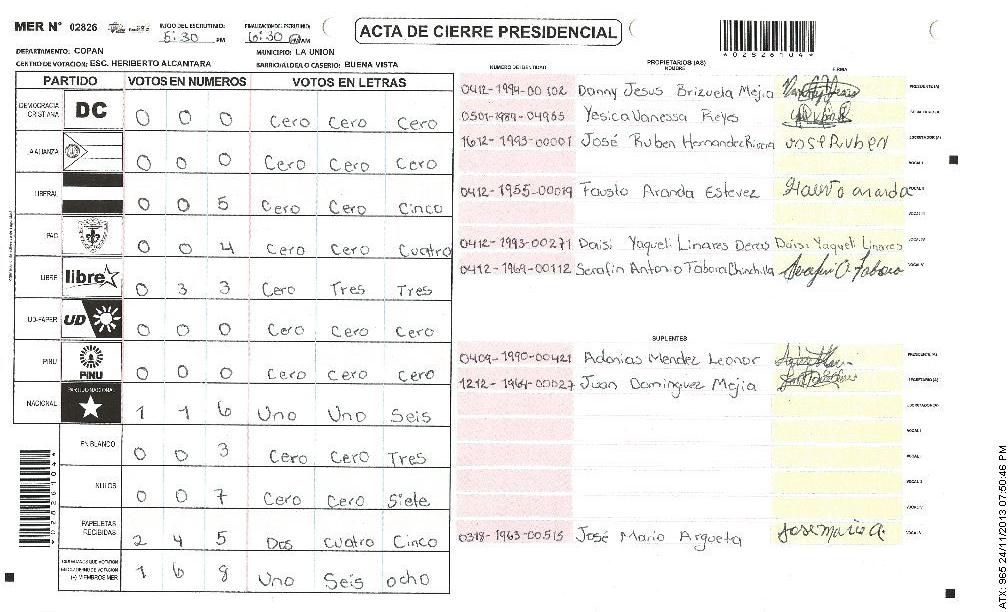 MER N° 02826
INICIO DEL ESCRUTINIO: 5:30 PM
FINALIZACION DEL ESCRUTINIO: 6:30 PM
ACTA DE CIERRE PRESIDENCIAL
*02826104*
DEPARTAMENTO: COPAN
MUNICIPIO: LA UNION
CENTRO DE VOTACION: ESC. HERIBERTO ALCANTARA
BARRIO/ALDEA O CASERIO: BUENA VISTA
PARTIDO VOTOS EN NUMEROS VOTOS EN LETRAS
DEMOCRACIA CRISTIANA DC 0 0 0 Cero Cero Cero
LA ALIANZA 0 0 0 Cero Cero Cero
LIBERAL 0 0 5 Cero Cero Cinco
PAC 0 0 4 Cero Cero Cuatro
LIBRE libre 0 3 3 Cero Tres Tres
UD-FAPER UD 0 0 0 Cero Cero Cero
PINU PINU 0 0 0 Cero Cero Cero
NACIONAL PARTIDO NACIONAL 1 1 6 Uno Uno Seis
EN BLANCO 0 0 3 Cero Cero Tres
NULOS 0 0 7 Cero Cero Siete
PAPELETAS RECIBIDAS 2 4 5 Dos Cuatro Cinco
(+) MIEMBROS MER 1 6 8 Uno Seis ocho
*02826104*
PROPIETARIOS (AS)
NUMERO DE IDENTIDAD NOMBRE FIRMA
0412-1994-00102 Danny Jesus Brizuela Mejia PRESIDENTE(A)
0501-1989-04965 Yesica Vanessa Reyes SECRETARIO(A)
1612-1993-00001 José Ruben Hernandez Rivera Jose Ruben ESCRUTADOR(A)
VOCAL I
0412-1955-00079 Fausto Aranda Estevez Fausto aranda VOCAL II
VOCAL III
0412-1993-00271 Daisi Yaqueli Linares Deras Daisi Yaqueli Linares VOCAL IV
0412-1969-00112 Serafin Antonio Tabora Chinchilla Serafin A. Tabora VOCAL V
SUPLENTES
0409-1990-00421 Adonias Mendez Leonor PRESIDENTE(A)
1212-1964-00027 Juan Dominguez Mejia SECRETARIO(A)
ESCRUTADOR(A)
VOCAL I
VOCAL II
VOCAL III
VOCAL IV
0318-1963-00515 José Mario Argueta Jose Mario A. VOCAL V
ATX: 965 24/11/2013 07:50:46 PM